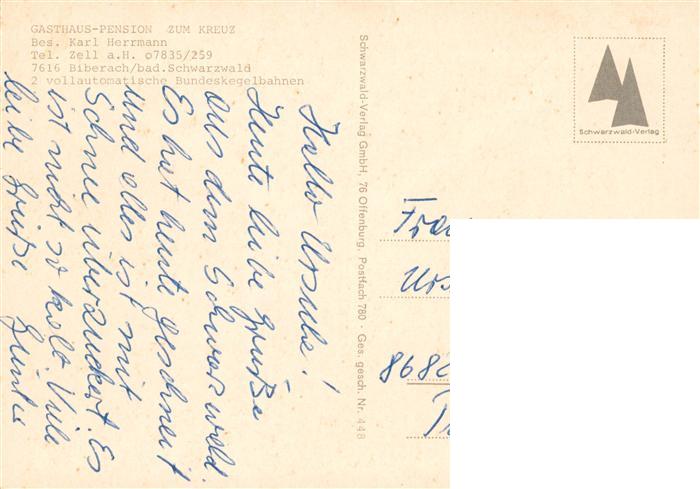 GASTHAUS-PENSION ZUM KREUZ
Bes. Karl Herrmann
Tel. Zell a.H. o7835/259
7616 Biberach/bad.Schwarzwald
2 vollautomatische Bundeskegelbahnen
Hallo Ursula!
Heute liebe Grüße
aus dem Schwarzwald.
Es hat heute geschneit
und alles ist mit
Schnee überzuckert. Es
ist nicht so kalt. Viele
liebe Grüße
Schwarzwald-Verlag GmbH, 76 Offenburg, Postfach 780 · Ges. gesch. Nr. 448
Schwarzwald-Verlag
Frau
Urs
868